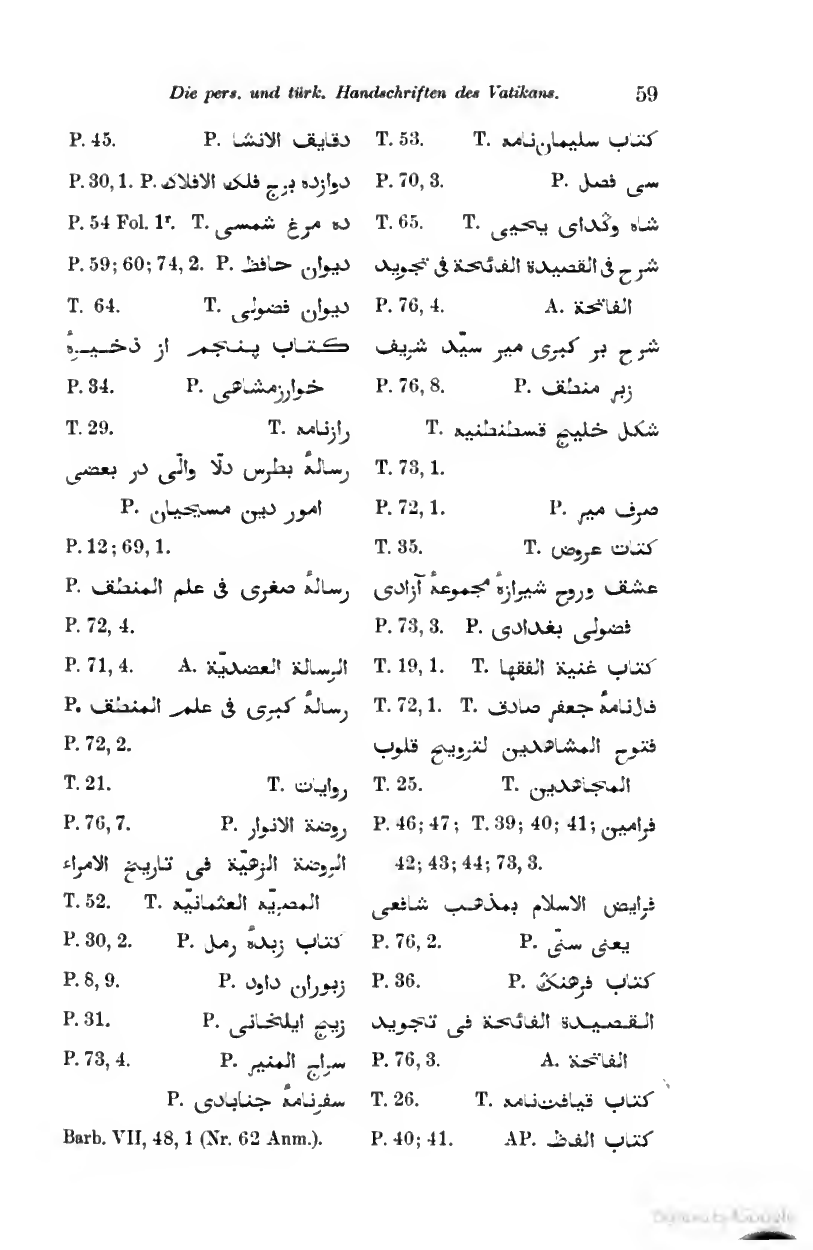 Die pers. und türk. Handschriften des Vatikans. 59
دقايق الانشا P. P. 45.
دوازده برج فلك الافلاك P. P. 30, 1.
ده مرغ شمسى T. P. 54 Fol. 1r.
ديوان حافظ P. P. 59; 60; 74, 2.
ديوان فضولى T. T. 64.
كتاب پنجم از ذخيرهٔ
خوارزمشاهى P. P. 34.
رازنامه T. T. 29.
رسالهٔ بطرس دلّا والّى در بعضى
امور دين مسيحيان P.
P. 12; 69, 1.
رسالهٔ صغرى فى علم المنطق P.
P. 72, 4.
الرسالة العضديّة A. P. 71, 4.
رسالهٔ كبرى فى علم المنطق P.
P. 72, 2.
روايات T. T. 21.
روضة الانوار P. P. 76, 7.
الروضة الزهيّة فى تاريخ الامراء
المصريّه العثمانيّه T. T. 52.
كتاب زبدهٔ رمل P. P. 30, 2.
زبوران داود P. P. 8, 9.
زيج ايلخانى P. P. 31.
سراج المنير P. P. 73, 4.
سفرنامهٔ جنابادى P.
Barb. VII, 48, 1 (Nr. 62 Anm.).
كتاب سليمان‌نامه T. T. 53.
سى فصل P. P. 70, 3.
شاه وگداى يحيى T. T. 65.
شرح فى القصيدة الفائحة فى تجويد
الفاتحة A. P. 76, 4.
شرح بر كبرى مير سيّد شريف
زبر منطق P. P. 76, 8.
شكل خليج قسطنطنيه T.
T. 73, 1.
صرف مير P. P. 72, 1.
كتات عروض T. T. 35.
عشق وروح شيرازهٔ مجموعهٔ آزادى
فضولى بغدادى P. P. 73, 3.
كتاب غنية الفقها T. T. 19, 1.
فالنامهٔ جعفر صادق T. T. 72, 1.
فتوح المشاهدين لترويح قلوب
المجاهدين T. T. 25.
فرامين P. 46; 47; T. 39; 40; 41;
42; 43; 44; 73, 3.
فرايض الاسلام بمذهب شافعى
يعنى سنّى P. P. 76, 2.
كتاب فرهنگ P. P. 36.
القصيدة الفائحة فى تجويد
الفاتحة A. P. 76, 3.
كتاب قيافت‌نامه T. T. 26.
كتاب الفظ AP. P. 40; 41.